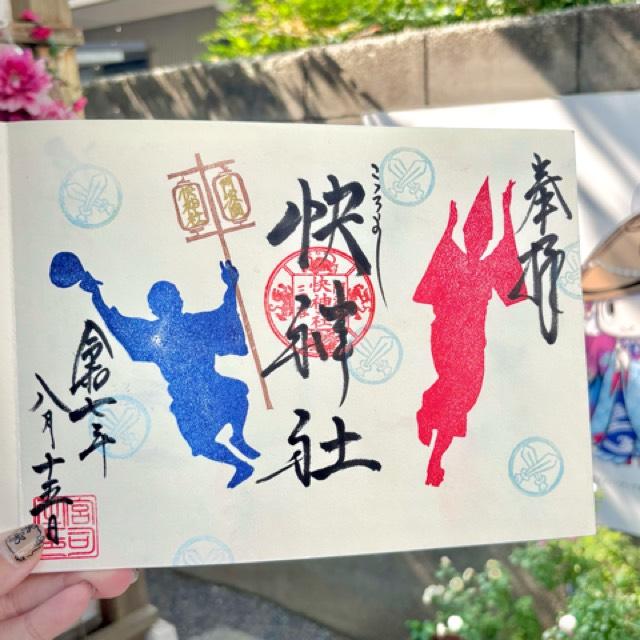 奉拝
こころよし
快神社
快神社
令和七年
八月十五日
宮司